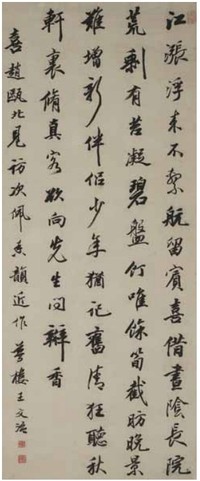 江漲浮來不繫航留賓喜借畫陰長院
荒剩有苔凝碧盤竹唯餘筍截肪晚景
難增新伴侶少年猶記舊清狂聽秋
軒裏脩真客欲向先生問瓣香
喜趙甌北見訪次佩香韻近作 夢樓王文治